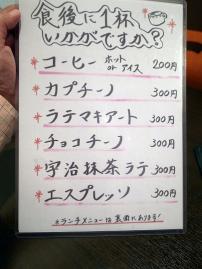 食後に1杯
いかがですか?
*コーヒー ホット or アイス 200円
*カプチーノ 300円
*ラテマキアート 300円
*チョコチーノ 300円
*宇治抹茶ラテ 300円
*エスプレッソ 300円
*ランチメニューは裏面にあります!